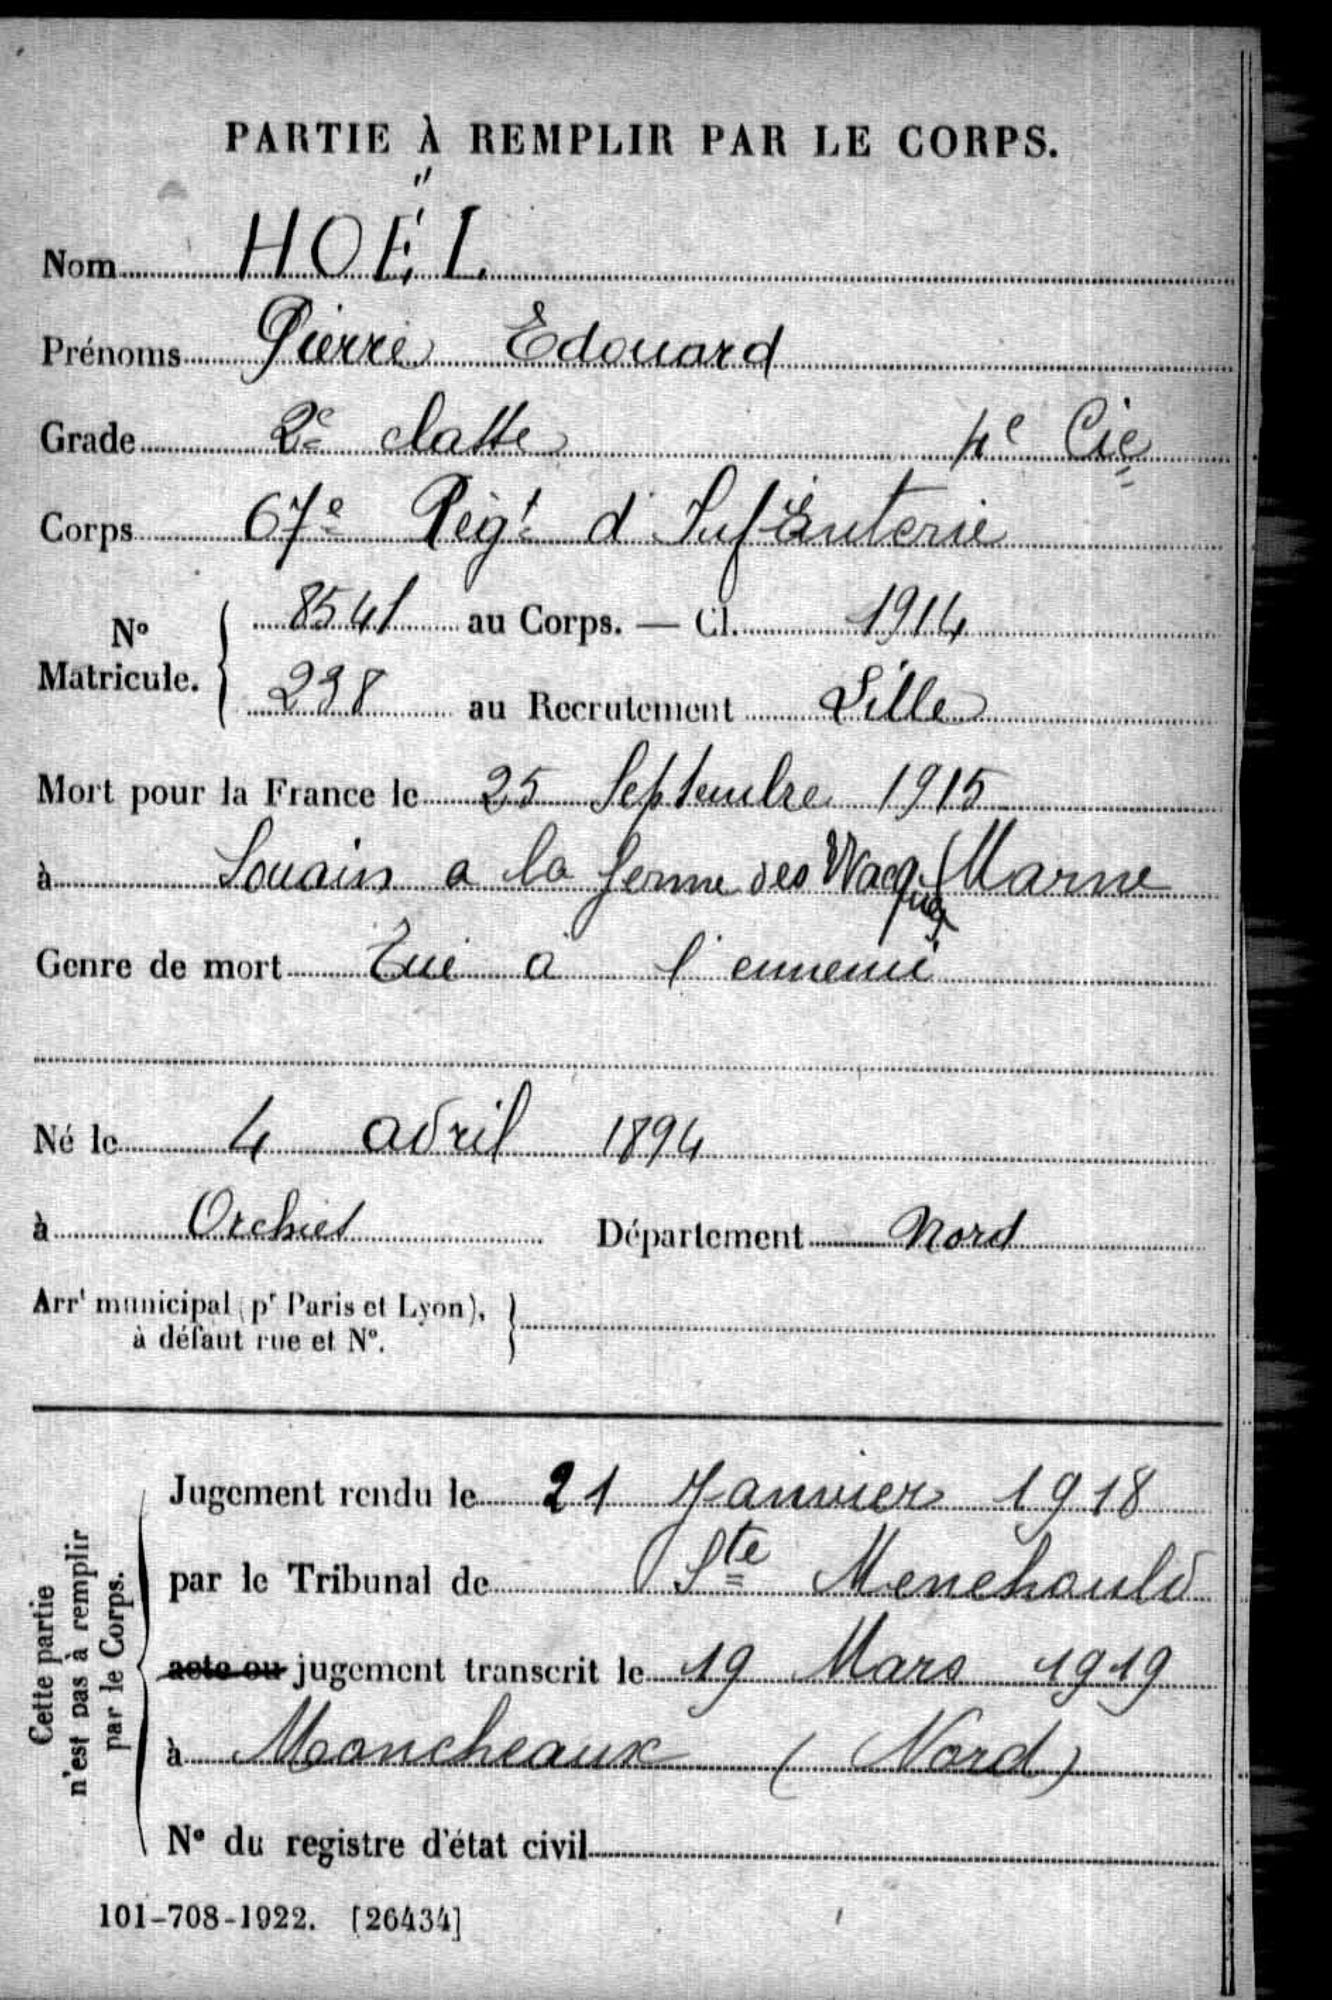 PARTIE À REMPLIR PAR LE CORPS.
Nom HOËL
Prénoms Pierre Edouard
Grade 2e classe 4e Cie
Corps 67e Régt d'Infanterie
No Matricule. 8541 au Corps. — Cl. 1914
238 au Recrutement Lille
Mort pour la France le 25 Septembre 1915
à Souain a la ferme des Wacques (Marne
Genre de mort Tué à l'ennemi
Né le 4 avril 1894
à Orchies Département Nord
Arrt municipal (pr Paris et Lyon),
à défaut rue et No.
Cette partie
n'est pas à remplir
par le Corps.
Jugement rendu le 21 Janvier 1918
par le Tribunal de Ste Menehould
acte ou jugement transcrit le 19 Mars 1919
à Moncheaux (Nord)
No du registre d'état civil
101-708-1922. [26434]